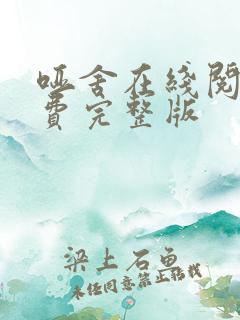 哑舍在线阅
费完整版
梁上石鱼
未经同意禁止转载